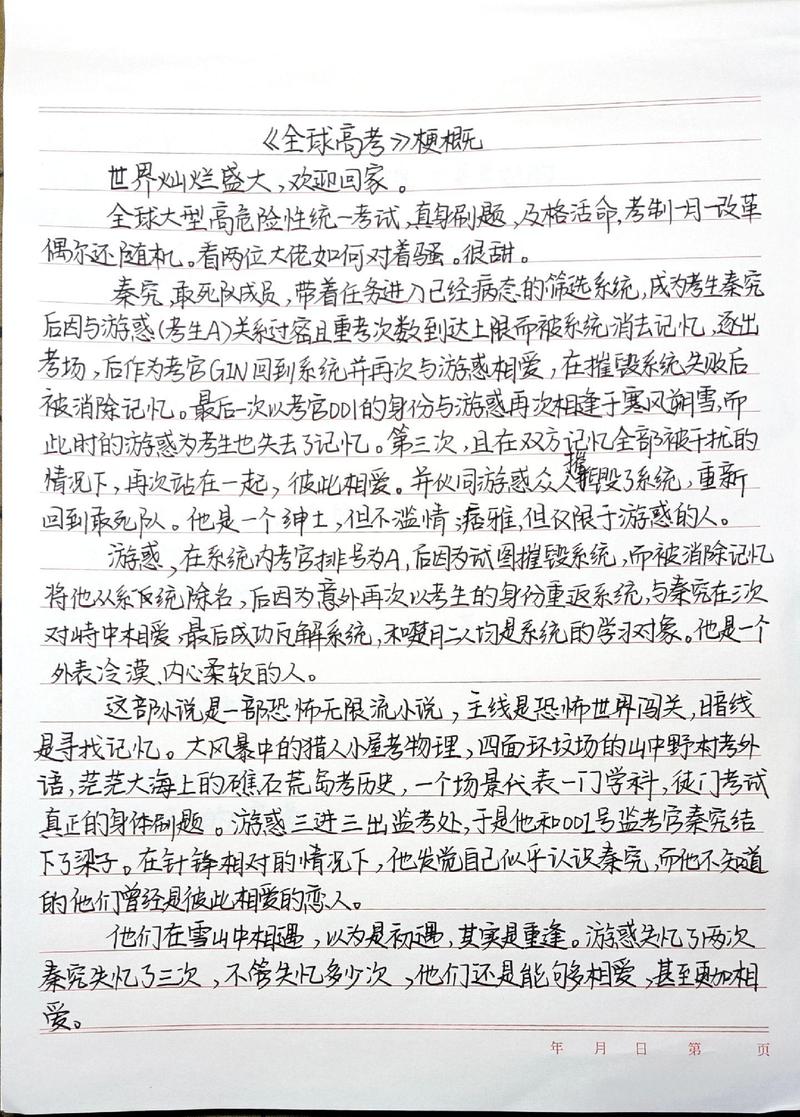 《全球高考》梗概
世界灿烂盛大，欢迎回家。
全球大型高危险性统一考试，真身刷题，及格活命，考制一月一改革
偶尔还随机。看两位大佬如何对着骚。很甜。
秦究，敢死队成员，带着任务进入已经病态的筛选系统，成为考生秦究
后因与游惑(考生A)关系过密且重考次数到达上限而被系统消去记忆，逐出
考场，后作为考官GIN回到系统并再次与游惑相爱，在摧毁系统失败后
被消除记忆。最后一次以考官001的身份与游惑再次相逢于寒风朔雪，而
此时的游惑为考生也失去了记忆。第三次，且在双方记忆全部被干扰的
情况下，再次站在一起，彼此相爱。并伙同游惑众人摧毁了系统，重新
回到敢死队。他是一个绅士，但不滥情 痞雅，但仅限于游惑的人。
游惑，在系统内考官排号为A，后因为试图摧毁系统，而被消除记忆
将他从系统除名，后因为意外再次以考生的身份重返系统，与秦究在三次
对峙中相爱，最后成功瓦解系统，和楚月二人均是系统的学习对象。他是一个
外表冷漠、内心柔软的人。
这部小说是一部恐怖无限流小说，主线是恐怖世界闯关，暗线
是寻找记忆。大风暴中的猎人小屋考物理，四面环坟场的山中野村考外
语，茫茫大海上的礁石荒岛考历史，一个场景代表一门学科，徒门考试
真正的身体刷题。游惑三进三出监考处，于是他和001号监考官秦究结
下了梁子。在针锋相对的情况下，他发觉自己似乎认识秦究，而他不知道
的他们曾经是彼此相爱的恋人。
他们在雪山中相遇，以为是初遇，其实是重逢。游惑失忆了两次
秦究失忆了三次，不管失忆多少次，他们还是能够多相爱，甚至更加相
爱。
年 月 日 第 页